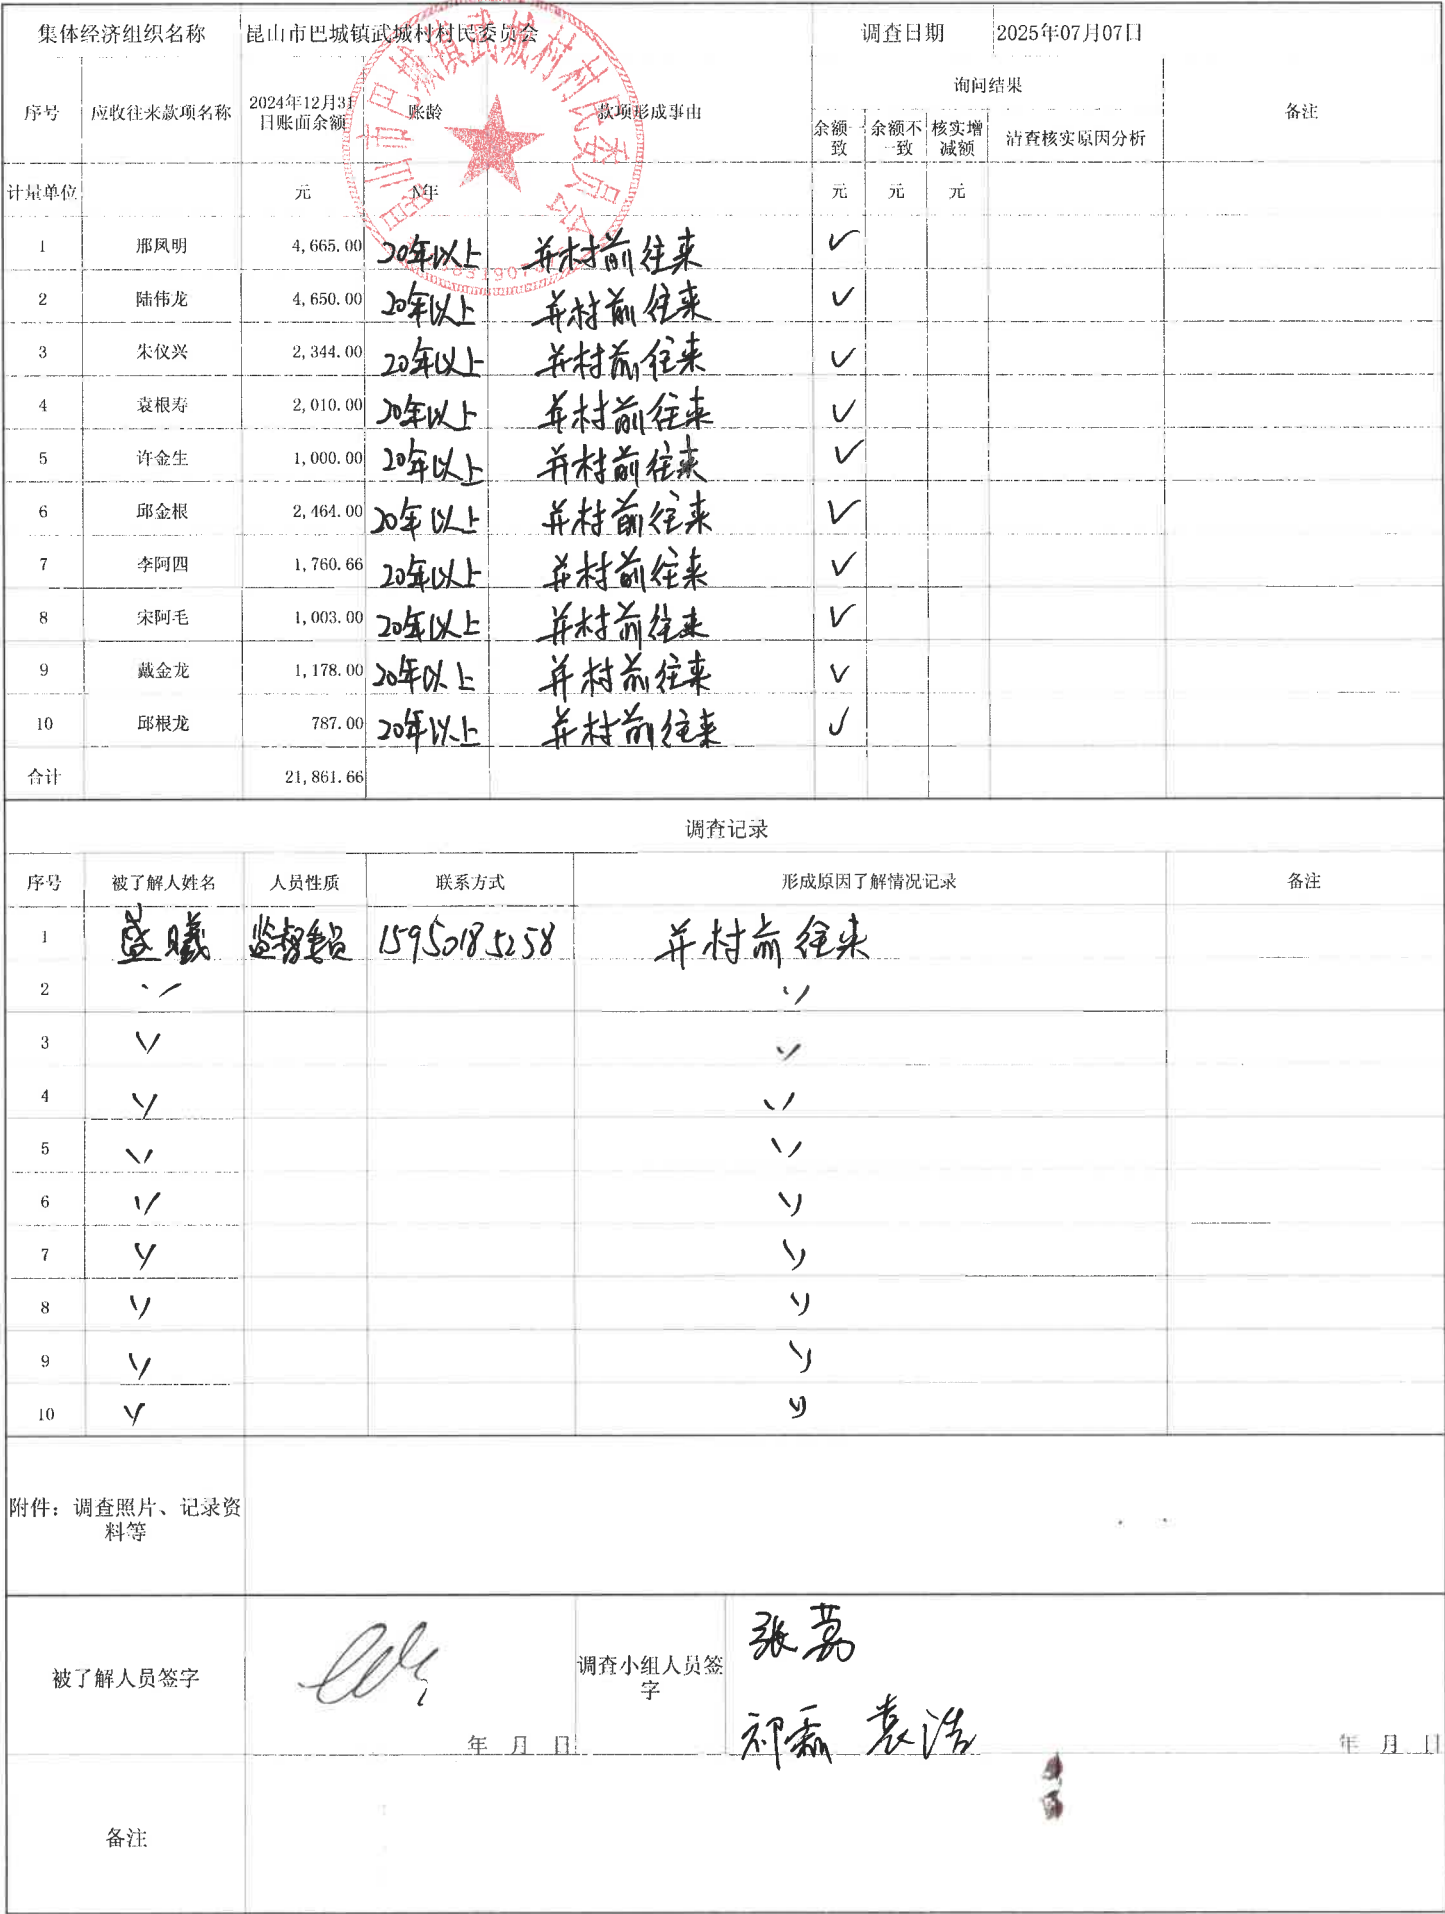 集体经济组织名称 昆山市巴城镇武城村村民委员会 调查日期 2025年07月07日
序号 应收往来款项名称 2024年12月31日账面余额 账龄 款项形成事由 询问结果 备注
余额一致 余额不一致 核实增减额 清查核实原因分析
计量单位 元 X年 元 元 元
1 邢凤明 4,665.00 20年以上 并村前往来 ✓
2 陆伟龙 4,650.00 20年以上 并村前往来 ✓
3 朱仪兴 2,344.00 20年以上 并村前往来 ✓
4 袁根寿 2,010.00 20年以上 并村前往来 ✓
5 许金生 1,000.00 20年以上 并村前往来 ✓
6 邱金根 2,464.00 20年以上 并村前往来 ✓
7 李阿四 1,760.66 20年以上 并村前往来 ✓
8 宋阿毛 1,003.00 20年以上 并村前往来 ✓
9 戴金龙 1,178.00 20年以上 并村前往来 ✓
10 邱根龙 787.00 20年以上 并村前往来 ✓
合计 21,861.66
昆山市巴城镇武城村村民委员会
调查记录
序号 被了解人姓名 人员性质 联系方式 形成原因了解情况记录 备注
1 盛曦 监督委员 15950185258 并村前往来
2 〃 〃
3 〃 〃
4 〃 〃
5 〃 〃
6 〃 〃
7 〃 〃
8 〃 〃
9 〃 〃
10 〃 〃
附件：调查照片、记录资料等
被了解人员签字 年 月 日
调查小组人员签字 张荔
祁磊 袁浩 年 月 日
备注